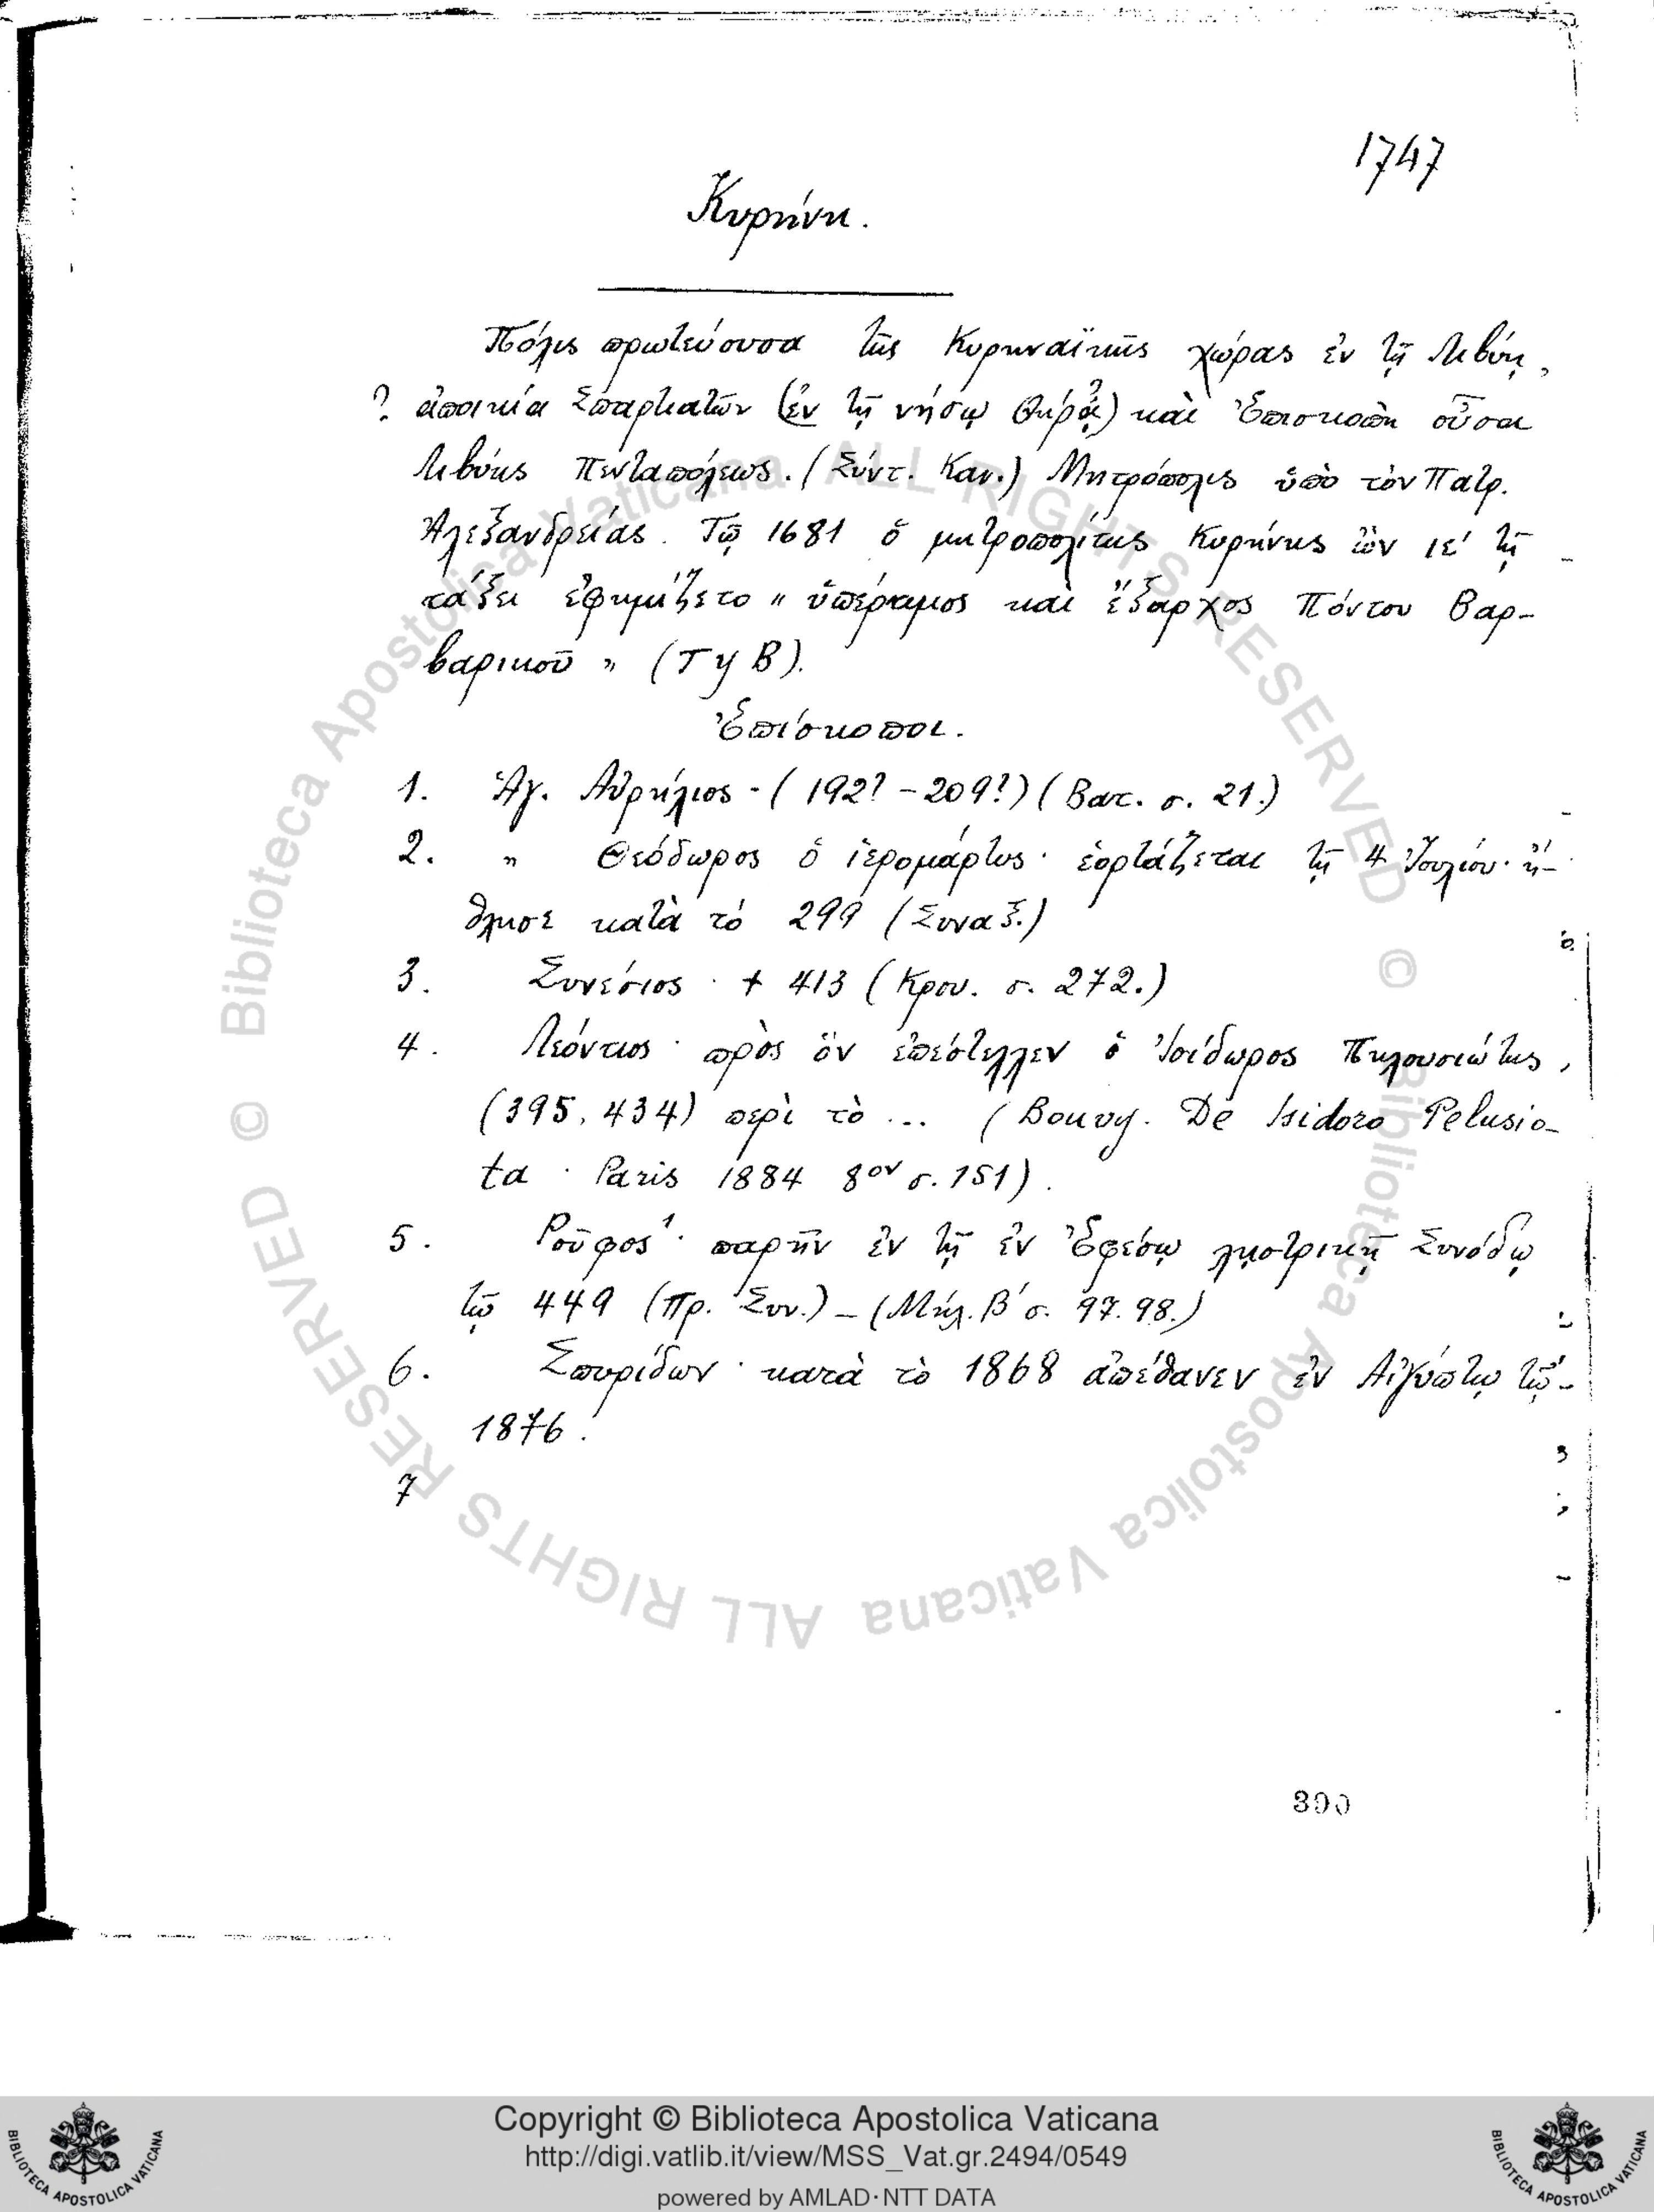 1747
Κυρήνη.
Πόλις πρωτεύουσα τῆς Κυρηναϊκῆς χώρας ἐν τῇ Λιβύῃ,
? ἀποικία Σπαρτιατῶν (ἐν τῇ νήσῳ Θήρᾳ) καὶ Ἐπισκοπὴ οὖσα
Λιβύης Πενταπόλεως. (Σύντ. Καν.) Μητρόπολις ὑπὸ τὸν Πατρ.
Ἀλεξανδρείας. Τῷ 1681 ὁ μητροπολίτης Κυρήνης ὢν ιε' τῇ
τάξει ἐφημίζετο " ὑπέρτιμος καὶ ἔξαρχος Πόντου Βαρ-
βαρικοῦ " (Τ γ Β).
Ἐπίσκοποι.
1. Ἅγ. Αὐρήλιος - (192? - 209?) (Βατ. σ. 21.)
2. " Θεόδωρος ὁ ἱερομάρτυς · ἑορτάζεται τῇ 4 Ἰουλίου · ἤ-
θλησε κατὰ τό 299 (Συναξ.)
3. Συνέσιος · + 413 (Κρου. σ. 272.)
4. Λεόντιος · πρὸς ὃν ἐπέστελλεν ὁ Ἰσίδωρος Πηλουσιώτης,
(395, 434) περὶ τὸ ... (Bouvy. De Isidoro Pelusio-
ta · Paris 1884 8ον σ. 151).
5. Ροῦφος' · παρῆν ἐν τῇ ἐν Ἐφέσῳ λῃστρικῇ Συνόδῳ
τῷ 449 (Πρ. Συν.) - (Μήλ. Β' σ. 97. 98.)
6. Σπυρίδων · κατὰ τὸ 1868 ἀπέθανεν ἐν Αἰγύπτῳ τῷ -
1876.
7
390
© Biblioteca Apostolica Vaticana ALL RIGHTS RESERVED
© Biblioteca Apostolica Vaticana ALL RIGHTS RESERVED
Copyright © Biblioteca Apostolica Vaticana
http://digi.vatlib.it/view/MSS_Vat.gr.2494/0549
powered by AMLAD·NTT DATA
BIBLIOTECA APOSTOLICA VATICANA
BIBLIOTECA APOSTOLICA VATICANA